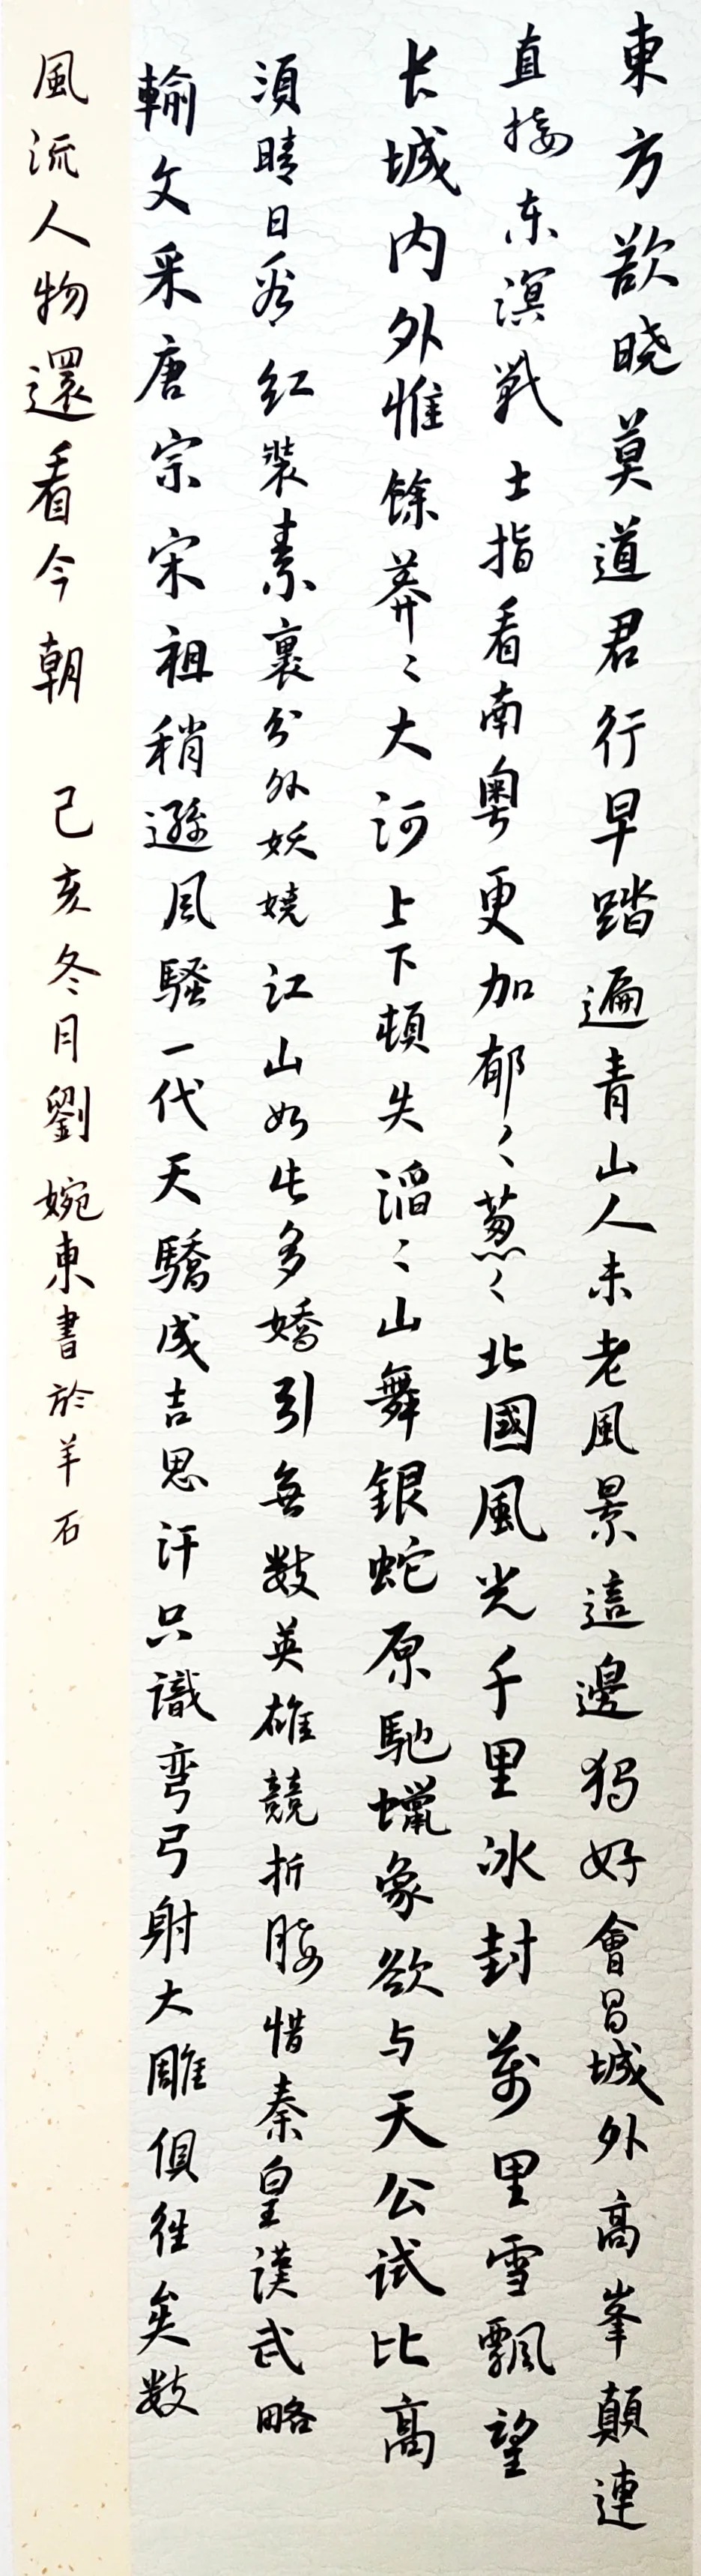 東方欲晓莫道君行早踏遍青山人未老風景這邊獨好會昌城外高峯顛連
直接东溟戰士指看南粵更加郁〻葱〻北國風光千里冰封萬里雪飄望
长城内外惟餘莽〻大河上下頓失滔〻山舞銀蛇原馳蠟象欲与天公試比高
須晴日看红裝素裹分外妖嬈江山如此多嬌引無數英雄競折腰惜秦皇漢武略
輸文采唐宗宋祖稍遜风騷一代天驕成吉思汗只識弯弓射大雕俱往矣數
風流人物還看今朝 己亥冬月劉婉東書於羊石